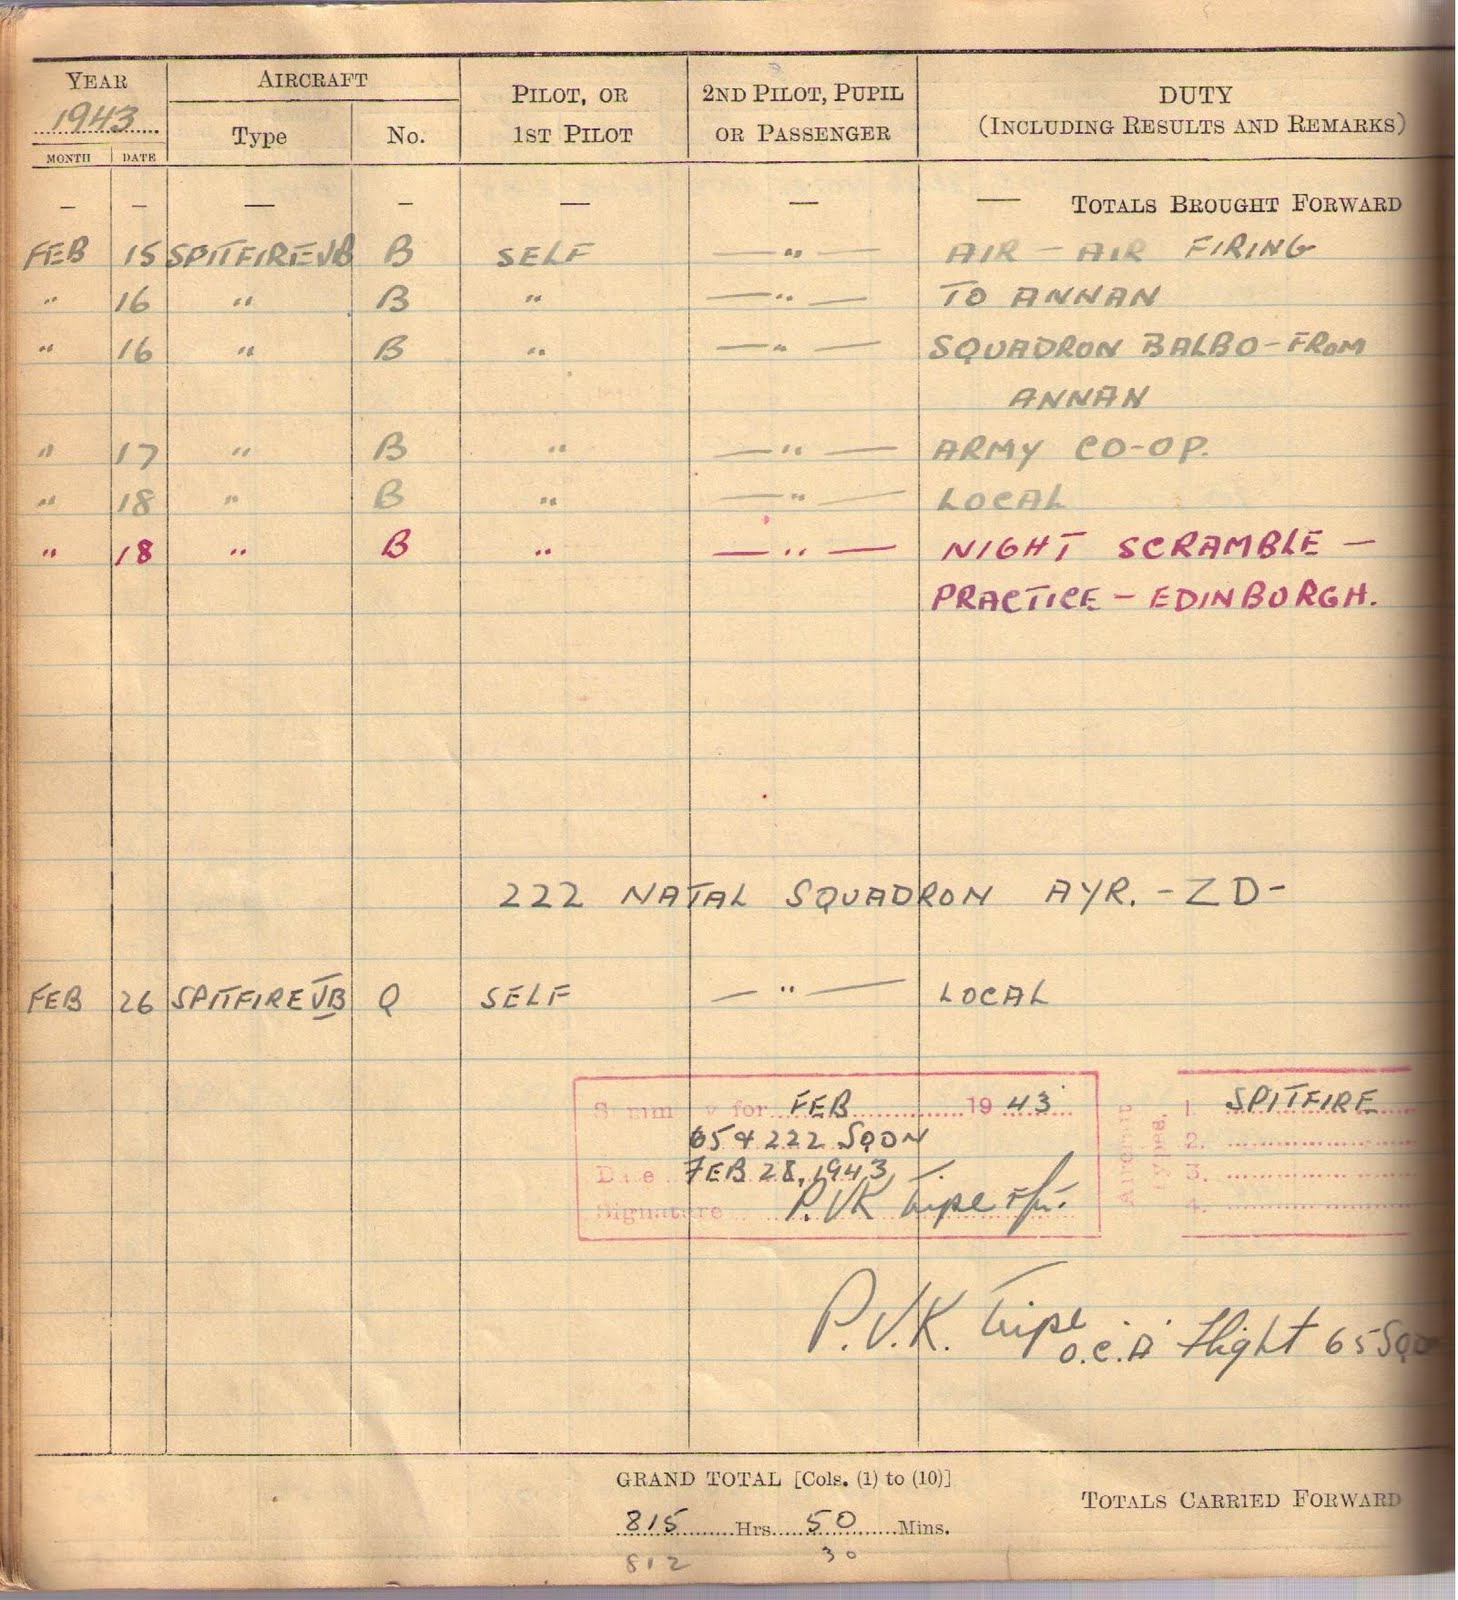 YEAR AIRCRAFT PILOT, OR 2ND PILOT, PUPIL DUTY
1943 Type No. 1ST PILOT OR PASSENGER (INCLUDING RESULTS AND REMARKS)
MONTH DATE
— — — — — — — TOTALS BROUGHT FORWARD
FEB 15 SPITFIRE VB B SELF — " — AIR — AIR FIRING
" 16 " B " — " — TO ANNAN
" 16 " B " — " — SQUADRON BALBO - FROM
ANNAN
" 17 " B " — " — ARMY CO-OP.
" 18 " B " — " — LOCAL
" 18 " B " — " — NIGHT SCRAMBLE —
PRACTICE - EDINBORGH.
222 NATAL SQUADRON AYR. - ZD -
FEB 26 SPITFIRE VB Q SELF — " — LOCAL
Summ y for FEB 1943 Aircraft Types. 1. SPITFIRE
65 & 222 SQDN 2.
Date FEB 28, 1943 3.
Signature P.VK Tripe 4.
P.V.K. Tripe
O.C. 'A' Flight 65 SQD
GRAND TOTAL [Cols. (1) to (10)]
TOTALS CARRIED FORWARD
815 Hrs. 50 Mins.
812 30